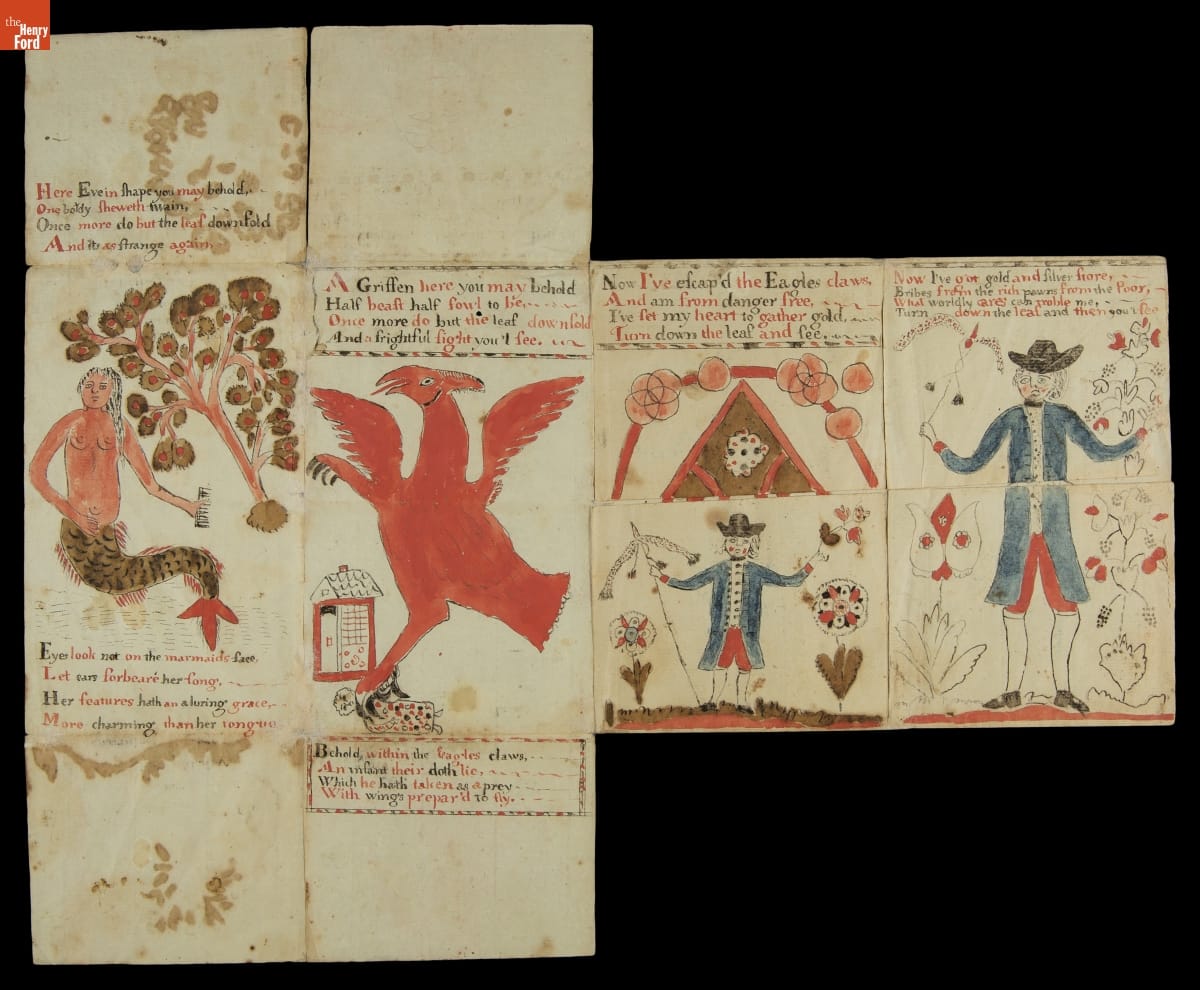 the
Henry
Ford
Here Eve in shape you may behold,
One body sheweth twain,
Once more do but the leaf downfold
And its as strange again.
A Griffen here you may behold
Half beast half fowl to be,
Once more do but the leaf downfold
And a frightful sight you'l see.
Now I've escap'd the Eagles claws,
And am from danger free,
I've set my heart to gather gold,
Turn down the leaf and see.
Now I've got gold and silver store,
Bribes from the rich pawns from the Poor,
What worldly cares can troble me,
Turn down the leaf and then you'l see
Eyes look not on the marmaids face,
Let ears forbeare her song,
Her features hath an aluring grace,
More charming than her tongue
Behold within the Eagles claws,
An infant their doth lie,
Which he hath taken as a prey
With wings prepar'd to fly.